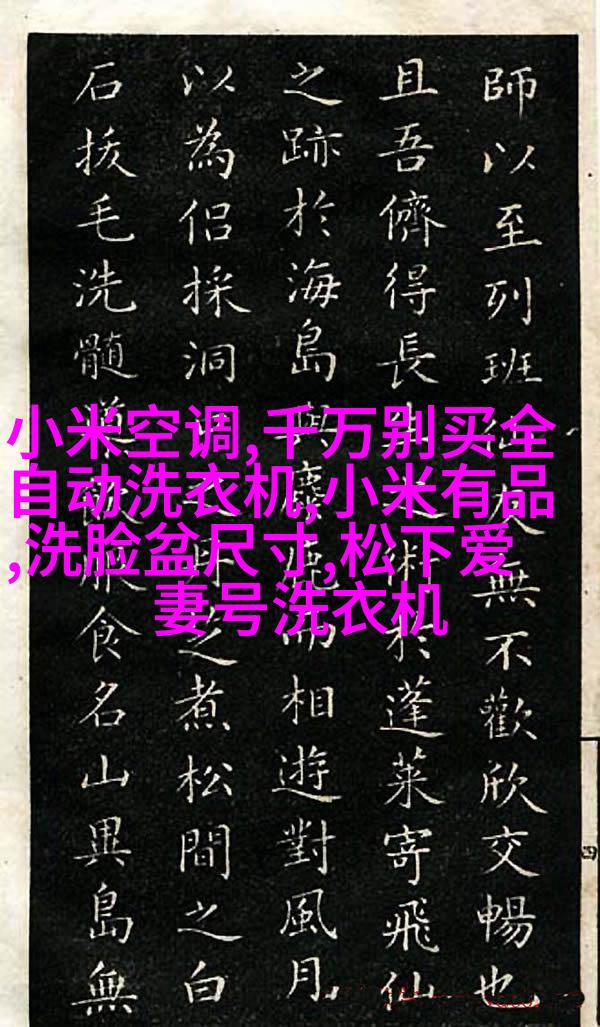 小米空调,千万别买全
自动洗衣机,小米有品
,洗脸盆尺寸,松下爱
妻号洗衣机
師以至列班無不歡欣交暢也
且吾儕得長生術於蓬萊寄飛仙
之跡於海島與麋鹿而相遊對風月
以為侶採洞之煮松間之白
石拔毛洗髓服食名山異島無
四